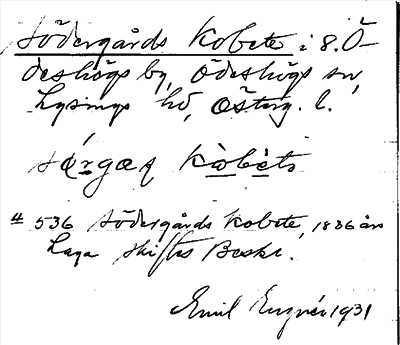 Södergårds Kobete i 8. Ö-
deshögs by, Ödeshögs sn,
Lysings hd, Österg. l.
Kobete
# 536 Södergårds Kobete, 1836 års
Laga Skiftes Beskr.
Emil Engnér 1931